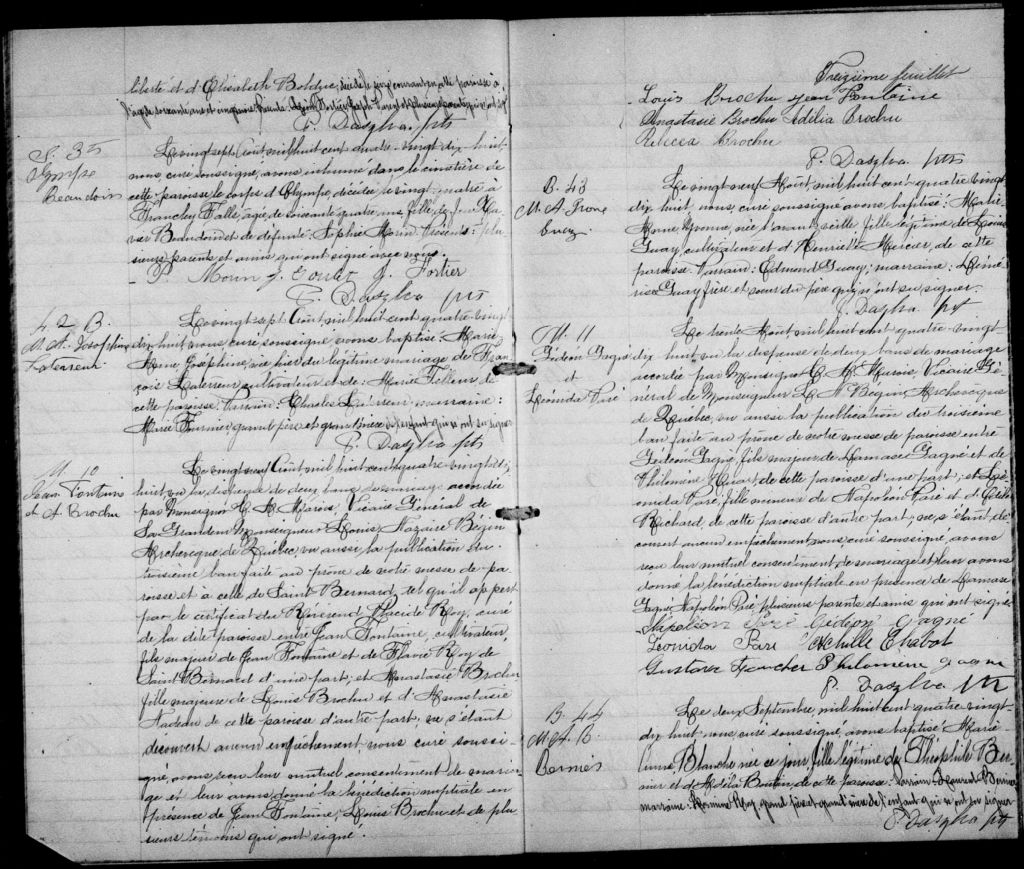 liberté et d'Elisabeth Bolduc,
P. Daszlva ptr
S. 35
Olympe
Beaudoin
Le vingt sept Août mil huit cent quatre-vingt dix huit
nous, curé soussigné, avons inhumé dans le cimetière de
cette paroisse le corps d'Olympe décédée le vingt quatre à
Franckey Falls, agée de soixante quatre ans, fille de Jean Xa-
vier Beaudoin et de défunte Sophie Morin. Présents: plu-
sieurs parents et amis qui ont signé avec nous.
P. Morin J. Goulet J. Fortier
P. Daszlva ptr
42 B.
M. A. Joséphine
Letourneur
Le vingt sept Août mil huit cent quatre-vingt
dix huit nous, curé soussigné avons baptisé Marie
Anne Joséphine, née hier du légitime mariage de Fran-
çois cultivateur et de Marie de
cette paroisse. Parrain: Charles marraine:
Marie Fournier, grand père et grand mère de l'enfant qui n'ont su signer
P. Daszlva ptr
M. 10
Jean Fontaine
et A. Brochu
Le vingt neuf Août mil huit cent quatre-vingt dix
huit vu la dispense de deux bans de mariage accordée
par Monsignor C. A. Marois, Vicaire Général de
Sa Grandeur Monseigneur Louis Nazaire Bégin
Archevêque de Québec, vu aussi la publication du
troisième ban faite au prône de notre messe de pa-
roisse et à celle de Saint Bernard, tel qu'il appert
par le certificat du Révérend Placide Roy, curé
de la dite paroisse entre Jean Fontaine, cultivateur,
fils majeur de Jean Fontaine et de Flavie Roy de
Saint Bernard d'une part; et Anastasie Brochu
fille majeure de Louis Brochu et d'Anastasie
Nadeau de cette paroisse d'autre part, ne s'étant
découvert aucun empêchement nous curé soussi-
gné, avons reçu leur mutuel consentement de maria-
ge et leur avons donné la bénédiction nuptiale en
présence de Jean Fontaine, Louis Brochu et de plu-
sieurs témoins qui ont signé.
Treizième feuillet
Louis Brochu Jean Fontaine
Anastasie Brochu Adélia Brochu
Rebecca Brochu
P. Daszlva ptr
B. 43
M. A. Yvone
Guay
Le vingt neuf Août mil huit cent quatre vingt
dix huit, nous, curé soussigné avons baptisé: Marie
Anne Yvonne, née l'avant veille fille légitime de Louis
Guay, cultivateur et d'Henriette Mercier, de cette
paroisse. Parrain: Edmond Guay; marraine:
Guay frère et soeur du père qui n'ont su signer.
P. Daszlva ptr
M. 11
Gédéon Gagné
et
Léonida Paré
Le trente Août mil huit cent quatre vingt-
dix huit vu la dispense de deux bans de mariage
accordée par Monsignor C. A. Marois, Vicaire Gé-
néral de Monseigneur L. N. Bégin, Archevêque
de Québec, vu aussi la publication du troisième
ban faite au prône de notre messe de paroisse entre
Gédéon Gagné, fils majeur de Damase Gagné et de
Philomène Huart de cette paroisse d'une part; et Lé-
onida Paré, fille mineure de Napoléon Paré et d'
Richard, de cette paroisse d'autre part; ne s'étant dé-
couvert aucun empêchement nous, curé soussigné, avons
reçu leur mutuel consentement de mariage et leur avons
donné la bénédiction nuptiale en présence de Damase
Gagné, Napoléon Paré, plusieurs parents et amis qui ont signé.
Napoléon Paré Gideon Gagné
Leonida Paré Achille Chabot
Gustave Philomène Gagné
P. Daszlva ptr
B. 44
M. A. B.
Bernier
Le deux Septembre mil huit cent quatre vingt-
dix huit nous, curé soussigné, avons baptisé Marie
Anne Blanche née ce jour, fille légitime de Théophile Ber-
nier et d'Adéla Boutin, de cette paroisse. Parrain: Laurent Bernier
marraine: Roy, grand père et grand mère de l'enfant qui n'ont su signer
P. Daszlva ptr